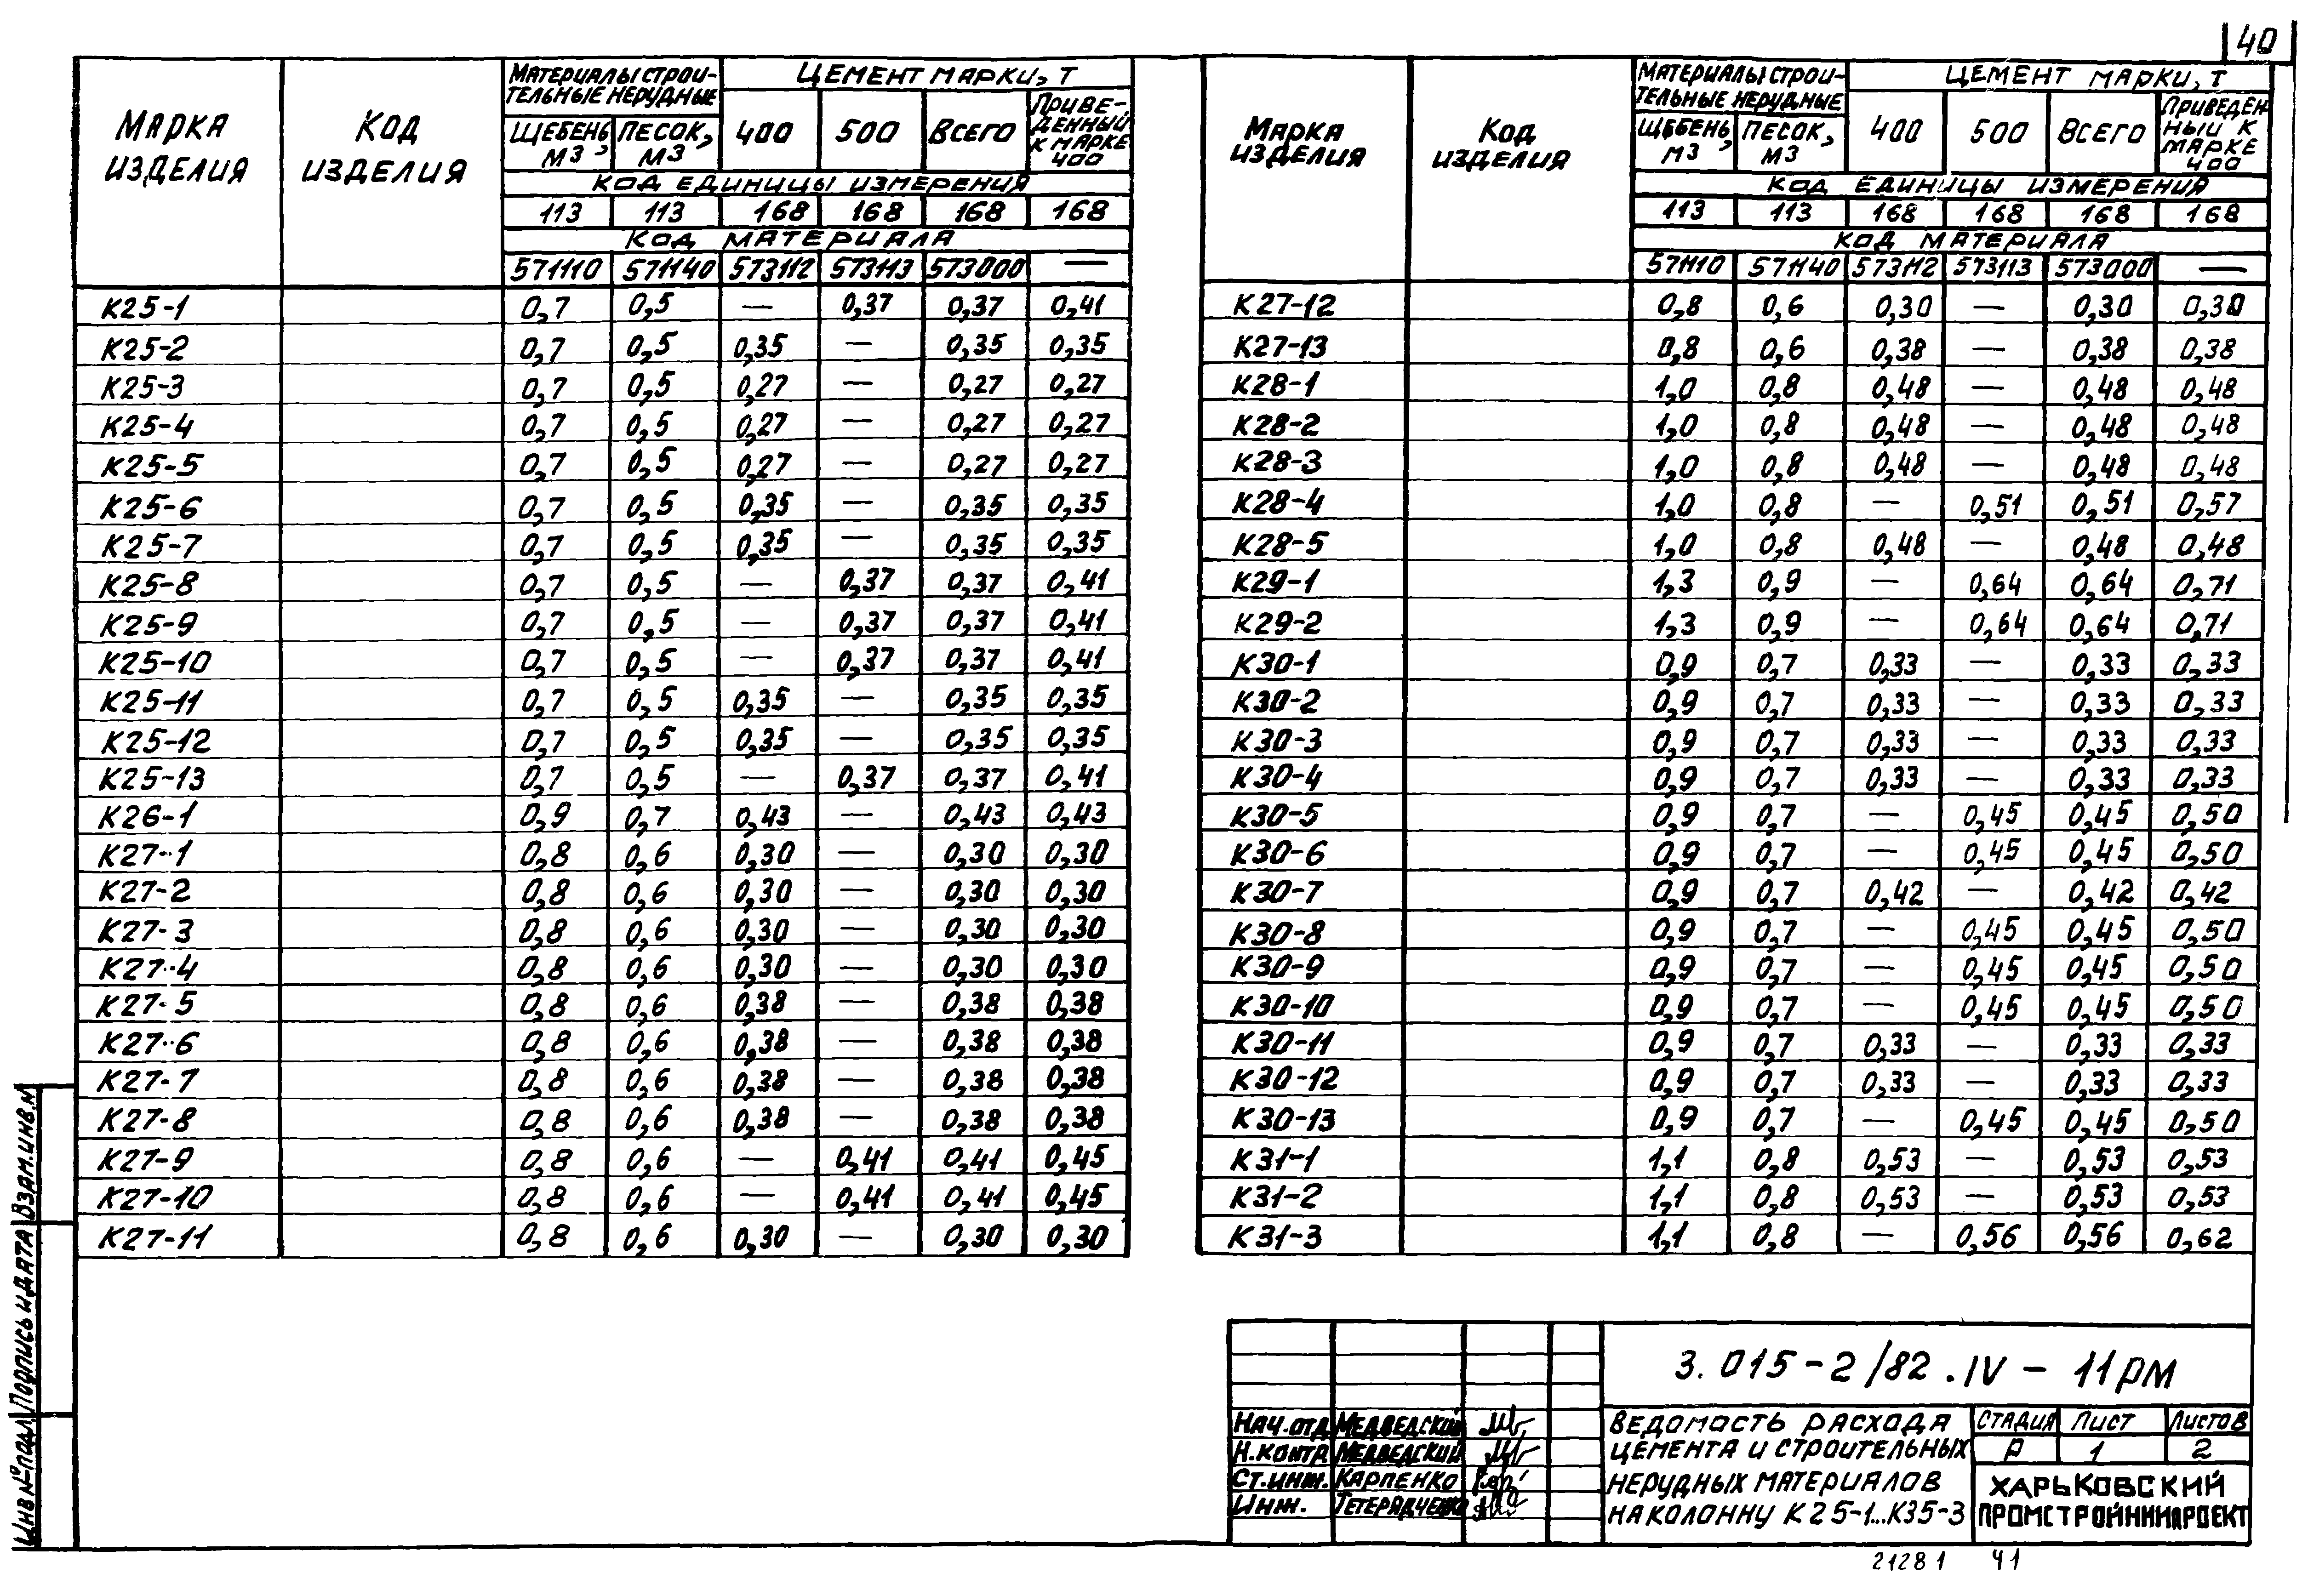 40
МАРКА ИЗДЕЛИЯ | КОД ИЗДЕЛИЯ | МАТЕРИАЛЫ СТРОИ-ТЕЛЬНЫЕ НЕРУДНЫЕ | ЦЕМЕНТ МАРКИ, Т
ЩЕБЕНЬ, М3 | ПЕСОК, М3 | 400 | 500 | ВСЕГО | ПРИВЕ-ДЕННЫЙ К МАРКЕ 400
КОД ЕДИНИЦЫ ИЗМЕРЕНИЯ
113 | 113 | 168 | 168 | 168 | 168
КОД МАТЕРИАЛА
571110 | 571140 | 573112 | 573113 | 573000 | —
К25-1 | 0,7 | 0,5 | — | 0,37 | 0,37 | 0,41
К25-2 | 0,7 | 0,5 | 0,35 | — | 0,35 | 0,35
К25-3 | 0,7 | 0,5 | 0,27 | — | 0,27 | 0,27
К25-4 | 0,7 | 0,5 | 0,27 | — | 0,27 | 0,27
К25-5 | 0,7 | 0,5 | 0,27 | — | 0,27 | 0,27
К25-6 | 0,7 | 0,5 | 0,35 | — | 0,35 | 0,35
К25-7 | 0,7 | 0,5 | 0,35 | — | 0,35 | 0,35
К25-8 | 0,7 | 0,5 | — | 0,37 | 0,37 | 0,41
К25-9 | 0,7 | 0,5 | — | 0,37 | 0,37 | 0,41
К25-10 | 0,7 | 0,5 | — | 0,37 | 0,37 | 0,41
К25-11 | 0,7 | 0,5 | 0,35 | — | 0,35 | 0,35
К25-12 | 0,7 | 0,5 | 0,35 | — | 0,35 | 0,35
К25-13 | 0,7 | 0,5 | — | 0,37 | 0,37 | 0,41
К26-1 | 0,9 | 0,7 | 0,43 | — | 0,43 | 0,43
К27-1 | 0,8 | 0,6 | 0,30 | — | 0,30 | 0,30
К27-2 | 0,8 | 0,6 | 0,30 | — | 0,30 | 0,30
К27-3 | 0,8 | 0,6 | 0,30 | — | 0,30 | 0,30
К27-4 | 0,8 | 0,6 | 0,30 | — | 0,30 | 0,30
К27-5 | 0,8 | 0,6 | 0,38 | — | 0,38 | 0,38
К27-6 | 0,8 | 0,6 | 0,38 | — | 0,38 | 0,38
К27-7 | 0,8 | 0,6 | 0,38 | — | 0,38 | 0,38
К27-8 | 0,8 | 0,6 | 0,38 | — | 0,38 | 0,38
К27-9 | 0,8 | 0,6 | — | 0,41 | 0,41 | 0,45
К27-10 | 0,8 | 0,6 | — | 0,41 | 0,41 | 0,45
К27-11 | 0,8 | 0,6 | 0,30 | — | 0,30 | 0,30
МАРКА ИЗДЕЛИЯ | КОД ИЗДЕЛИЯ | МАТЕРИАЛЫ СТРОИ-ТЕЛЬНЫЕ НЕРУДНЫЕ | ЦЕМЕНТ МАРКИ, Т
ЩЕБЕНЬ, М3 | ПЕСОК, М3 | 400 | 500 | ВСЕГО | ПРИВЕДЕН-НЫЙ К МАРКЕ 400
КОД ЕДИНИЦЫ ИЗМЕРЕНИЯ
113 | 113 | 168 | 168 | 168 | 168
КОД МАТЕРИАЛА
571110 | 571140 | 573112 | 573113 | 573000 | —
К27-12 | 0,8 | 0,6 | 0,30 | — | 0,30 | 0,30
К27-13 | 0,8 | 0,6 | 0,38 | — | 0,38 | 0,38
К28-1 | 1,0 | 0,8 | 0,48 | — | 0,48 | 0,48
К28-2 | 1,0 | 0,8 | 0,48 | — | 0,48 | 0,48
К28-3 | 1,0 | 0,8 | 0,48 | — | 0,48 | 0,48
К28-4 | 1,0 | 0,8 | — | 0,51 | 0,51 | 0,57
К28-5 | 1,0 | 0,8 | 0,48 | — | 0,48 | 0,48
К29-1 | 1,3 | 0,9 | — | 0,64 | 0,64 | 0,71
К29-2 | 1,3 | 0,9 | — | 0,64 | 0,64 | 0,71
К30-1 | 0,9 | 0,7 | 0,33 | — | 0,33 | 0,33
К30-2 | 0,9 | 0,7 | 0,33 | — | 0,33 | 0,33
К30-3 | 0,9 | 0,7 | 0,33 | — | 0,33 | 0,33
К30-4 | 0,9 | 0,7 | 0,33 | — | 0,33 | 0,33
К30-5 | 0,9 | 0,7 | — | 0,45 | 0,45 | 0,50
К30-6 | 0,9 | 0,7 | — | 0,45 | 0,45 | 0,50
К30-7 | 0,9 | 0,7 | 0,42 | — | 0,42 | 0,42
К30-8 | 0,9 | 0,7 | — | 0,45 | 0,45 | 0,50
К30-9 | 0,9 | 0,7 | — | 0,45 | 0,45 | 0,50
К30-10 | 0,9 | 0,7 | — | 0,45 | 0,45 | 0,50
К30-11 | 0,9 | 0,7 | 0,33 | — | 0,33 | 0,33
К30-12 | 0,9 | 0,7 | 0,33 | — | 0,33 | 0,33
К30-13 | 0,9 | 0,7 | — | 0,45 | 0,45 | 0,50
К31-1 | 1,1 | 0,8 | 0,53 | — | 0,53 | 0,53
К31-2 | 1,1 | 0,8 | 0,53 | — | 0,53 | 0,53
К31-3 | 1,1 | 0,8 | — | 0,56 | 0,56 | 0,62
3.015-2/82.IV-11РМ
НАЧ.ОТД. МЕДВЕДСКИЙ
Н.КОНТР. МЕДВЕДСКИЙ
СТ.ИНЖ. КАРПЕНКО
ИНЖ. ТЕТЕРЯДЧЕНКО
ВЕДОМОСТЬ РАСХОДА
ЦЕМЕНТА И СТРОИТЕЛЬНЫХ
НЕРУДНЫХ МАТЕРИАЛОВ
НА КОЛОННУ К25-1...К35-3
СТАДИЯ | ЛИСТ | ЛИСТОВ
Р | 1 | 2
ХАРЬКОВСКИЙ
ПРОМСТРОЙНИИПРОЕКТ
21281 41
ИНВ №ПОДЛ. | ПОДПИСЬ И ДАТА | ВЗАМ.ИНВ.№